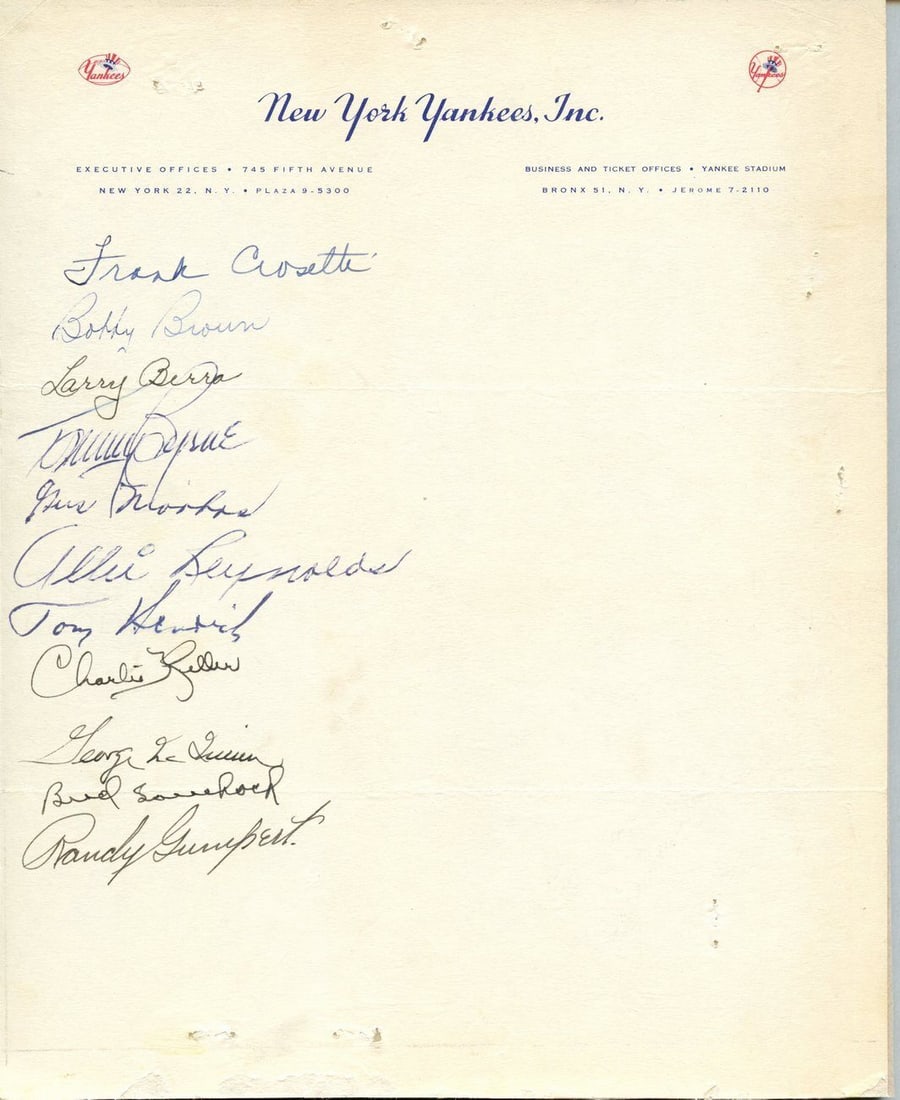 Yankees
Yankees
New York Yankees, Inc.
EXECUTIVE OFFICES • 745 FIFTH AVENUE
NEW YORK 22, N. Y. • PLAZA 9-5300
BUSINESS AND TICKET OFFICES • YANKEE STADIUM
BRONX 51, N. Y. • JEROME 7-2110
Frank Crosetti
Bobby Brown
Larry Berra
Tommy Byrne
Gus Niarhos
Allie Reynolds
Tom Henrich
Charlie Keller
George McQuinn
Bud Souchock
Randy Gumpert.